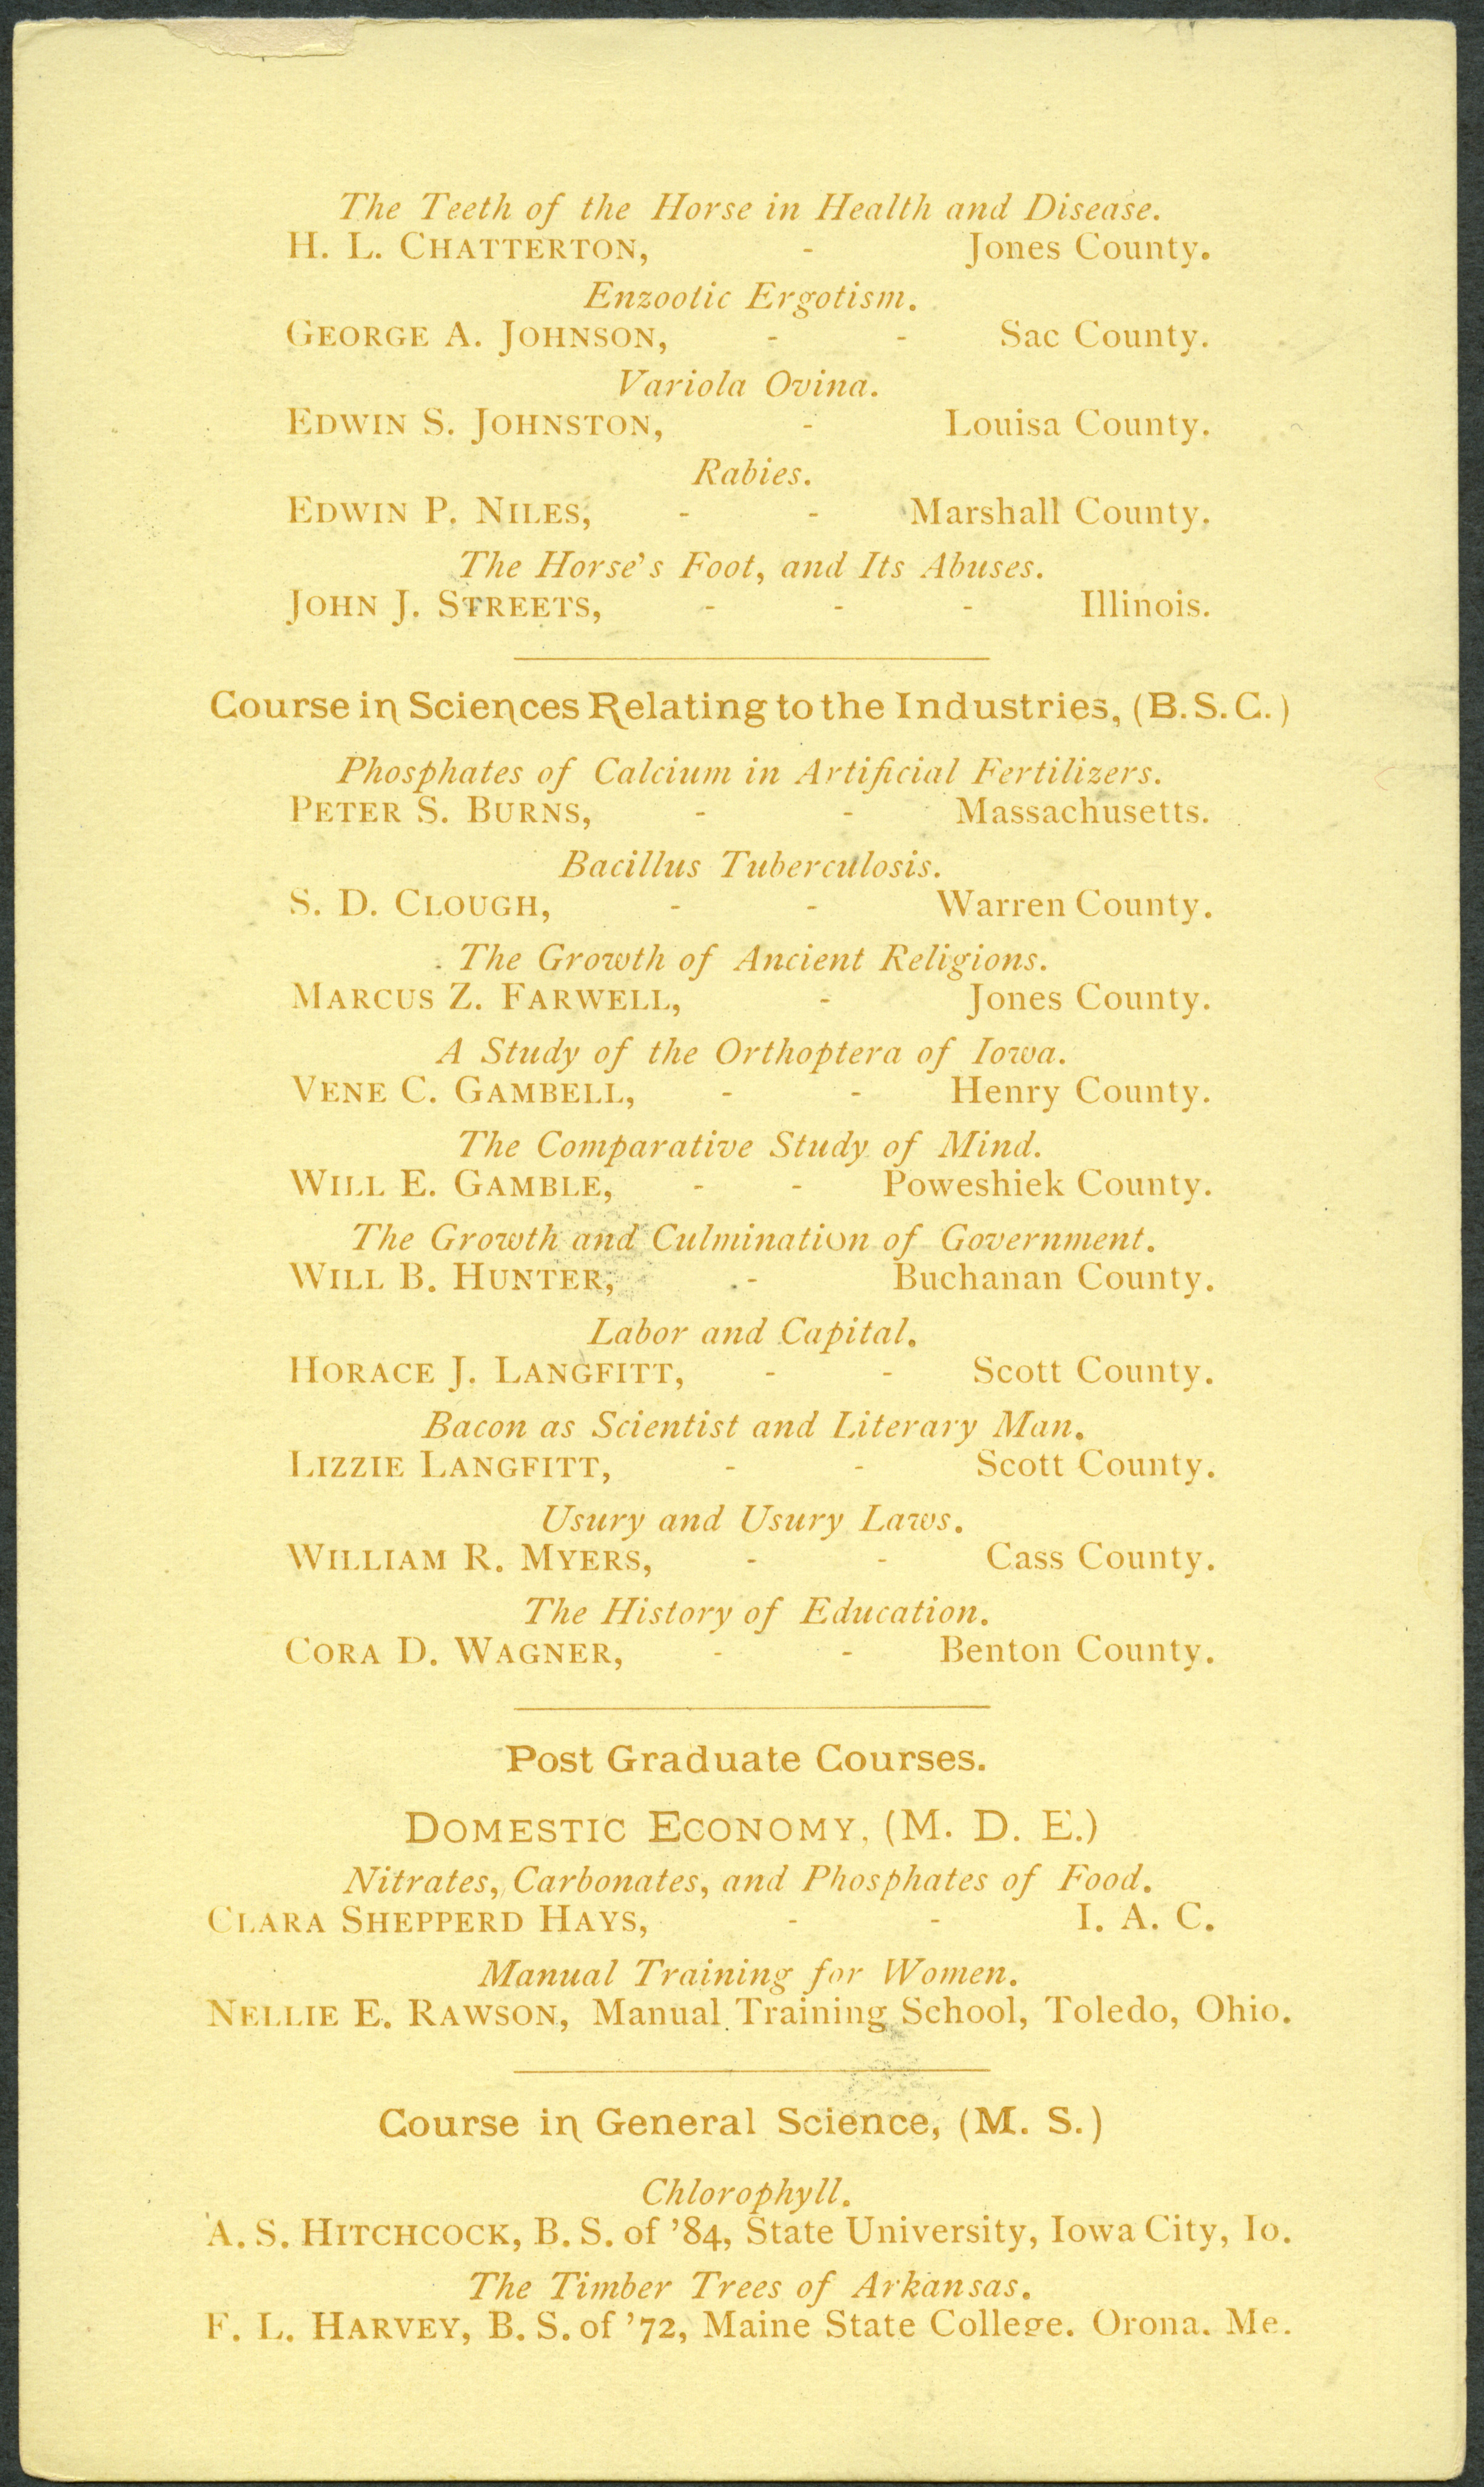 The Teeth of the Horse in Health and Disease.
H. L. CHATTERTON, - Jones County.
Enzootic Ergotism.
GEORGE A. JOHNSON, - - Sac County.
Variola Ovina.
EDWIN S. JOHNSTON, - Louisa County.
Rabies.
EDWIN P. NILES, - - Marshall County.
The Horse's Foot, and Its Abuses.
JOHN J. STREETS, - - - Illinois.
Course in Sciences Relating to the Industries, (B. S. C.)
Phosphates of Calcium in Artificial Fertilizers.
PETER S. BURNS, - - Massachusetts.
Bacillus Tuberculosis.
S. D. CLOUGH, - - Warren County.
The Growth of Ancient Religions.
MARCUS Z. FARWELL, - Jones County.
A Study of the Orthoptera of Iowa.
VENE C. GAMBELL, - - Henry County.
The Comparative Study of Mind.
WILL E. GAMBLE, - - Poweshiek County.
The Growth and Culmination of Government.
WILL B. HUNTER, - Buchanan County.
Labor and Capital.
HORACE J. LANGFITT, - - Scott County.
Bacon as Scientist and Literary Man.
LIZZIE LANGFITT, - - Scott County.
Usury and Usury Laws.
WILLIAM R. MYERS, - - Cass County.
The History of Education.
CORA D. WAGNER, - - Benton County.
Post Graduate Courses.
DOMESTIC ECONOMY, (M. D. E.)
Nitrates, Carbonates, and Phosphates of Food.
CLARA SHEPPERD HAYS, - - I. A. C.
Manual Training for Women.
NELLIE E. RAWSON, Manual Training School, Toledo, Ohio.
Course in General Science, (M. S.)
Chlorophyll.
A. S. HITCHCOCK, B. S. of '84, State University, Iowa City, Io.
The Timber Trees of Arkansas.
F. L. HARVEY, B. S. of '72, Maine State College. Orona. Me.